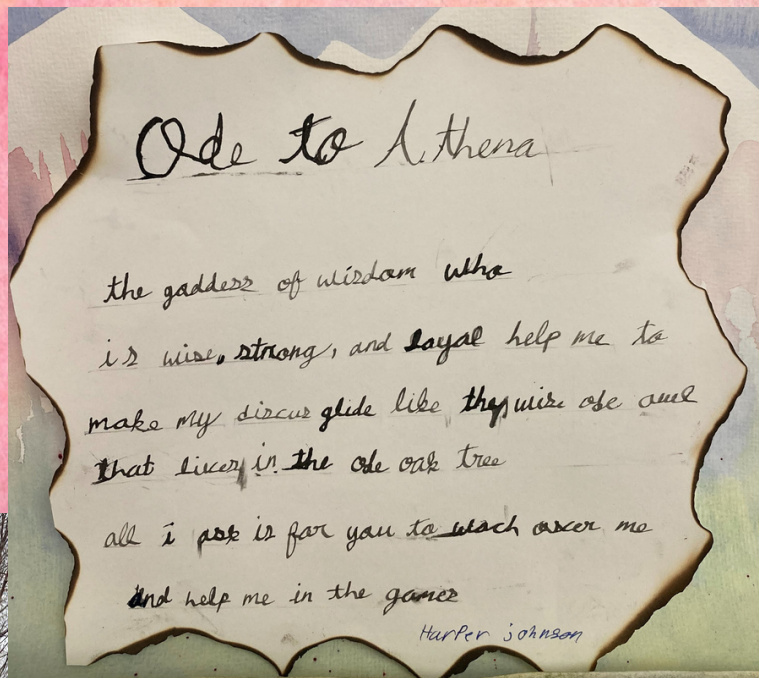 Ode to Athena
the goddess of wisdom who
is wise, strong, and loyal help me to
make my discus glide like the wise ole owl
that lives in the ole oak tree
all i ask is for you to wach over me
and help me in the games
Harper johnson